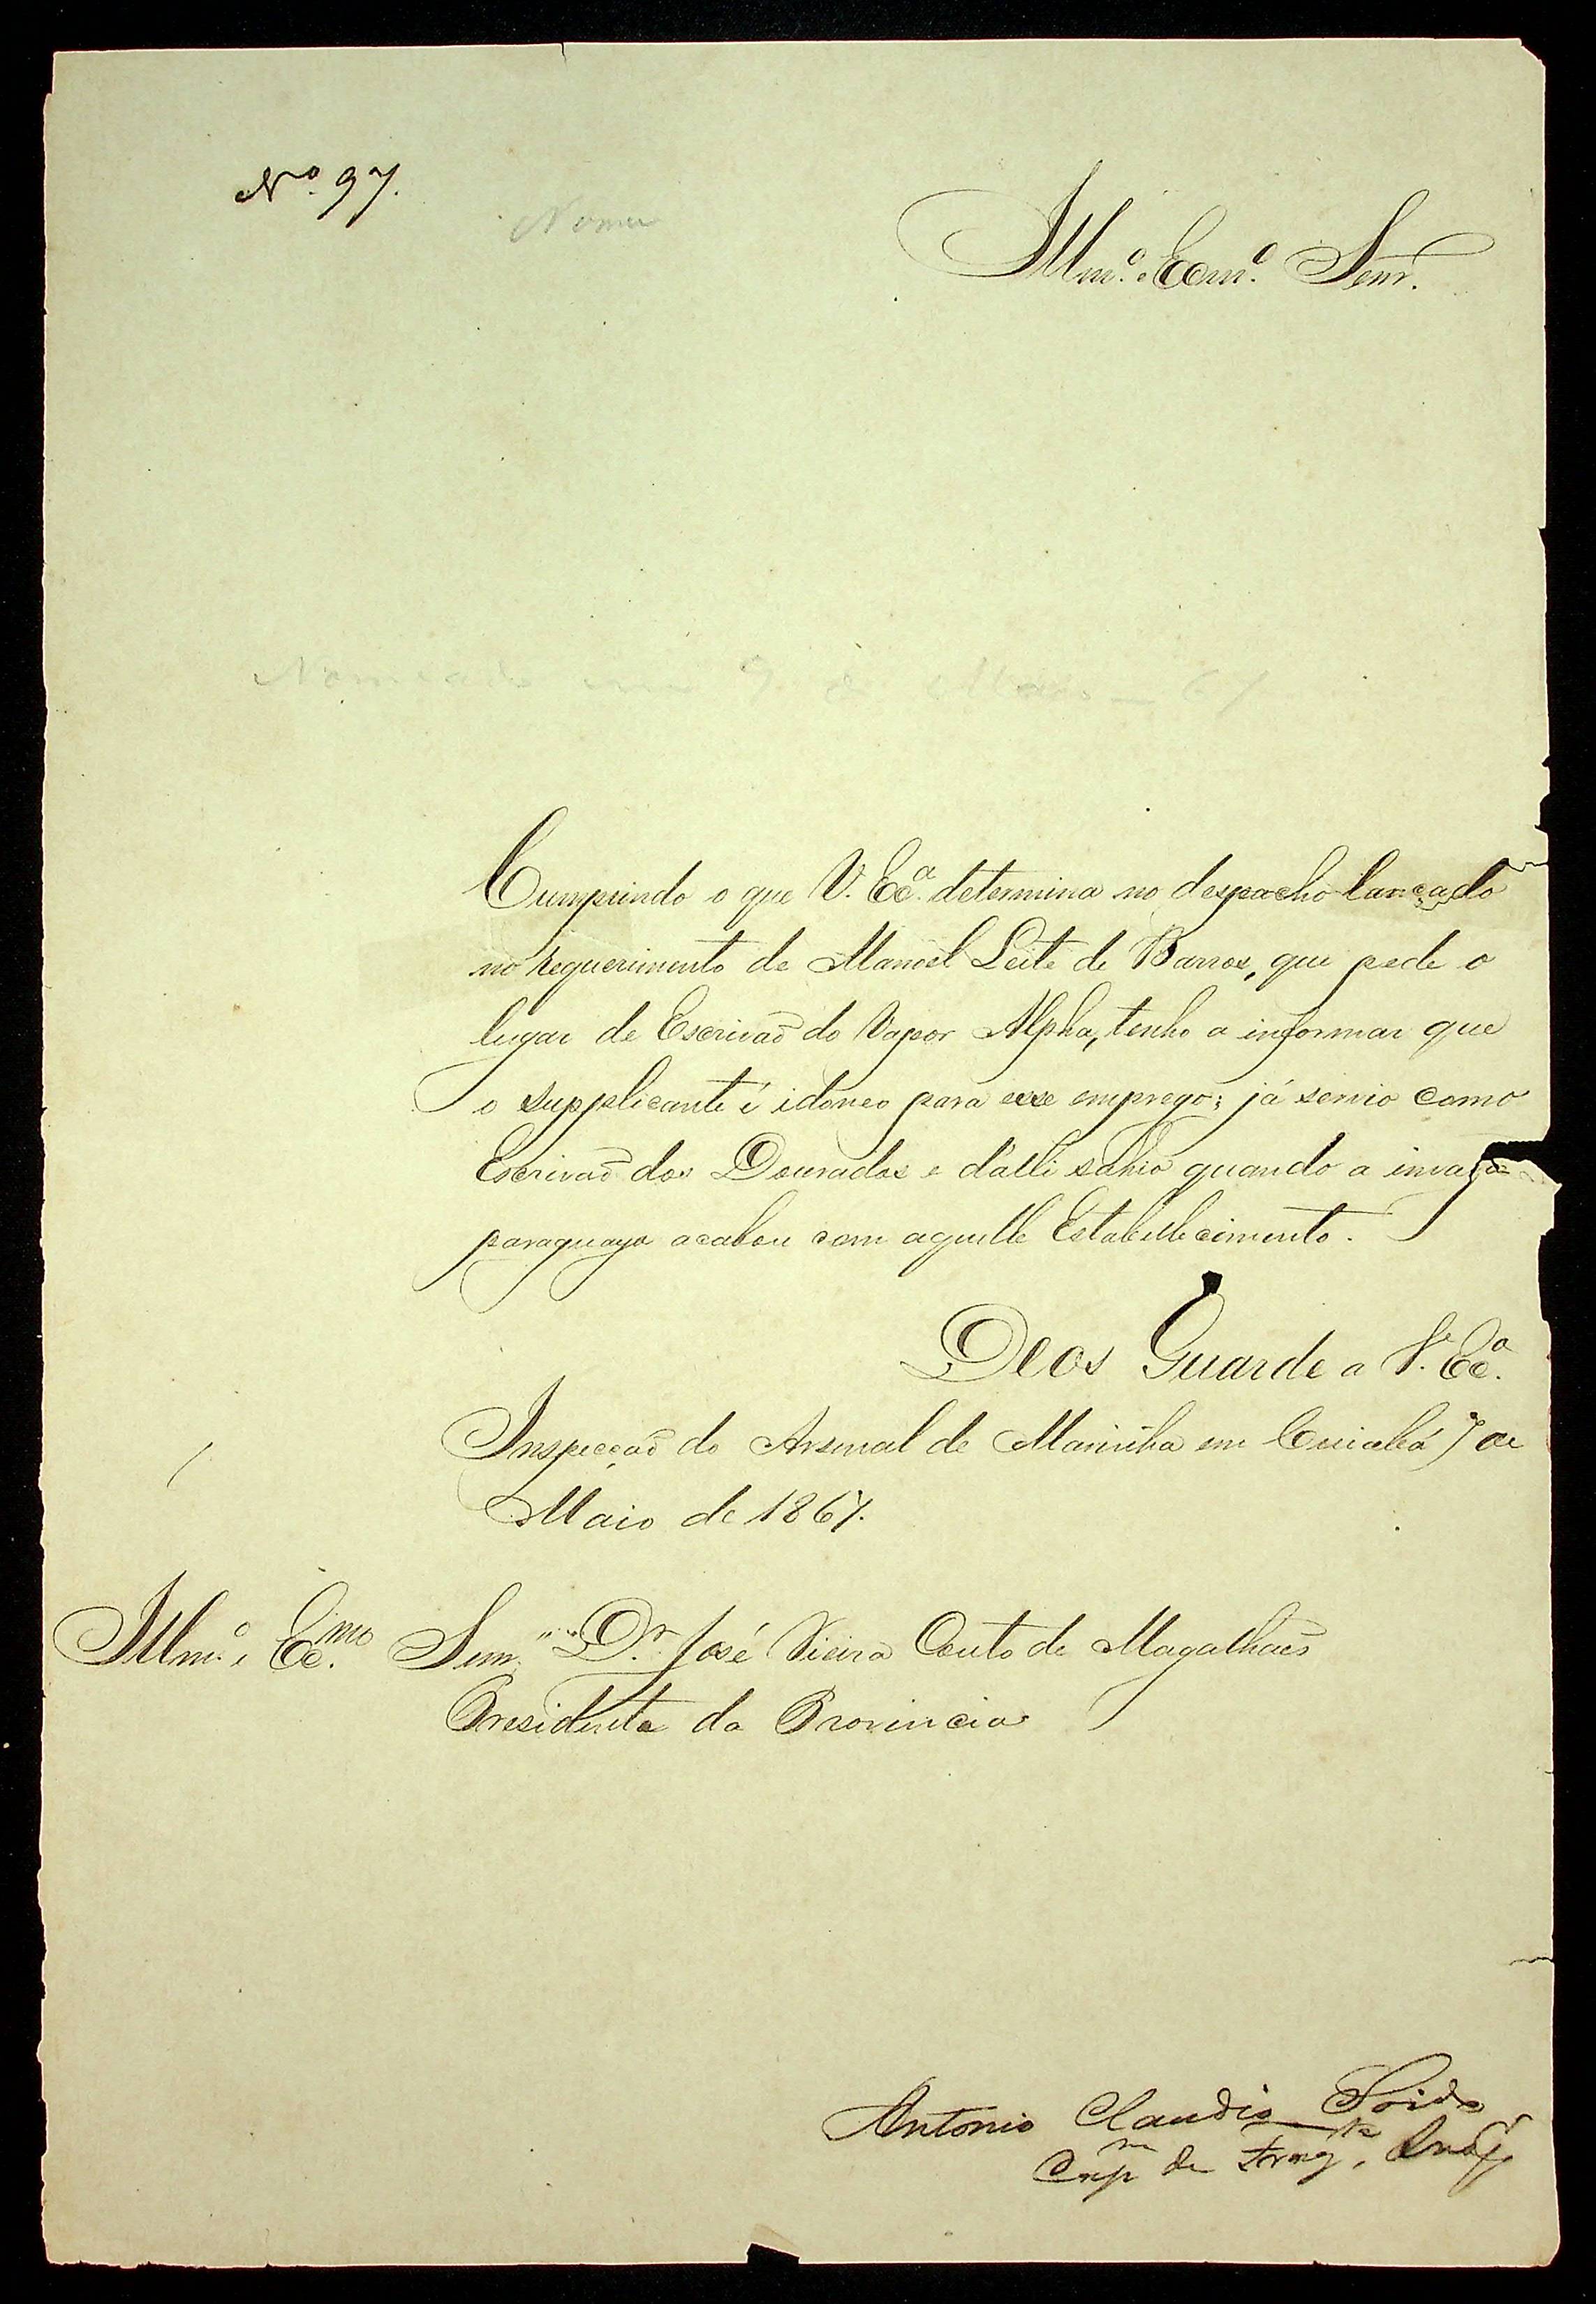 Nº 97.
Nomea
Illmº. Exmº. Senr.
Nomeado em 9 de Maio - 67
Cumprindo o que V. Exª. determina no despacho lançado
no requerimento de Manoel Leite de Barros, que pede o
lugar de Escrivaõ do Vapor Alpha, tenho a informar que
o supplicante é idoneo para esse emprego; já servio como
Escrivaõ dos Dourados e d'alli sahio quando a invasaõ
paraguaya acabou com aquelle Estabellecimento.
Deos Guarde a V. Exª.
Inspecçaõ do Arsenal de Marinha em Cuiabá 7 de
Maio de 1867.
Illmº. e Exmo Senr. Dr. José Vieira Couto de Magalhaẽs
Presidente da Provincia
Antonio Claudio Soido
Capm de Fragta, Insp